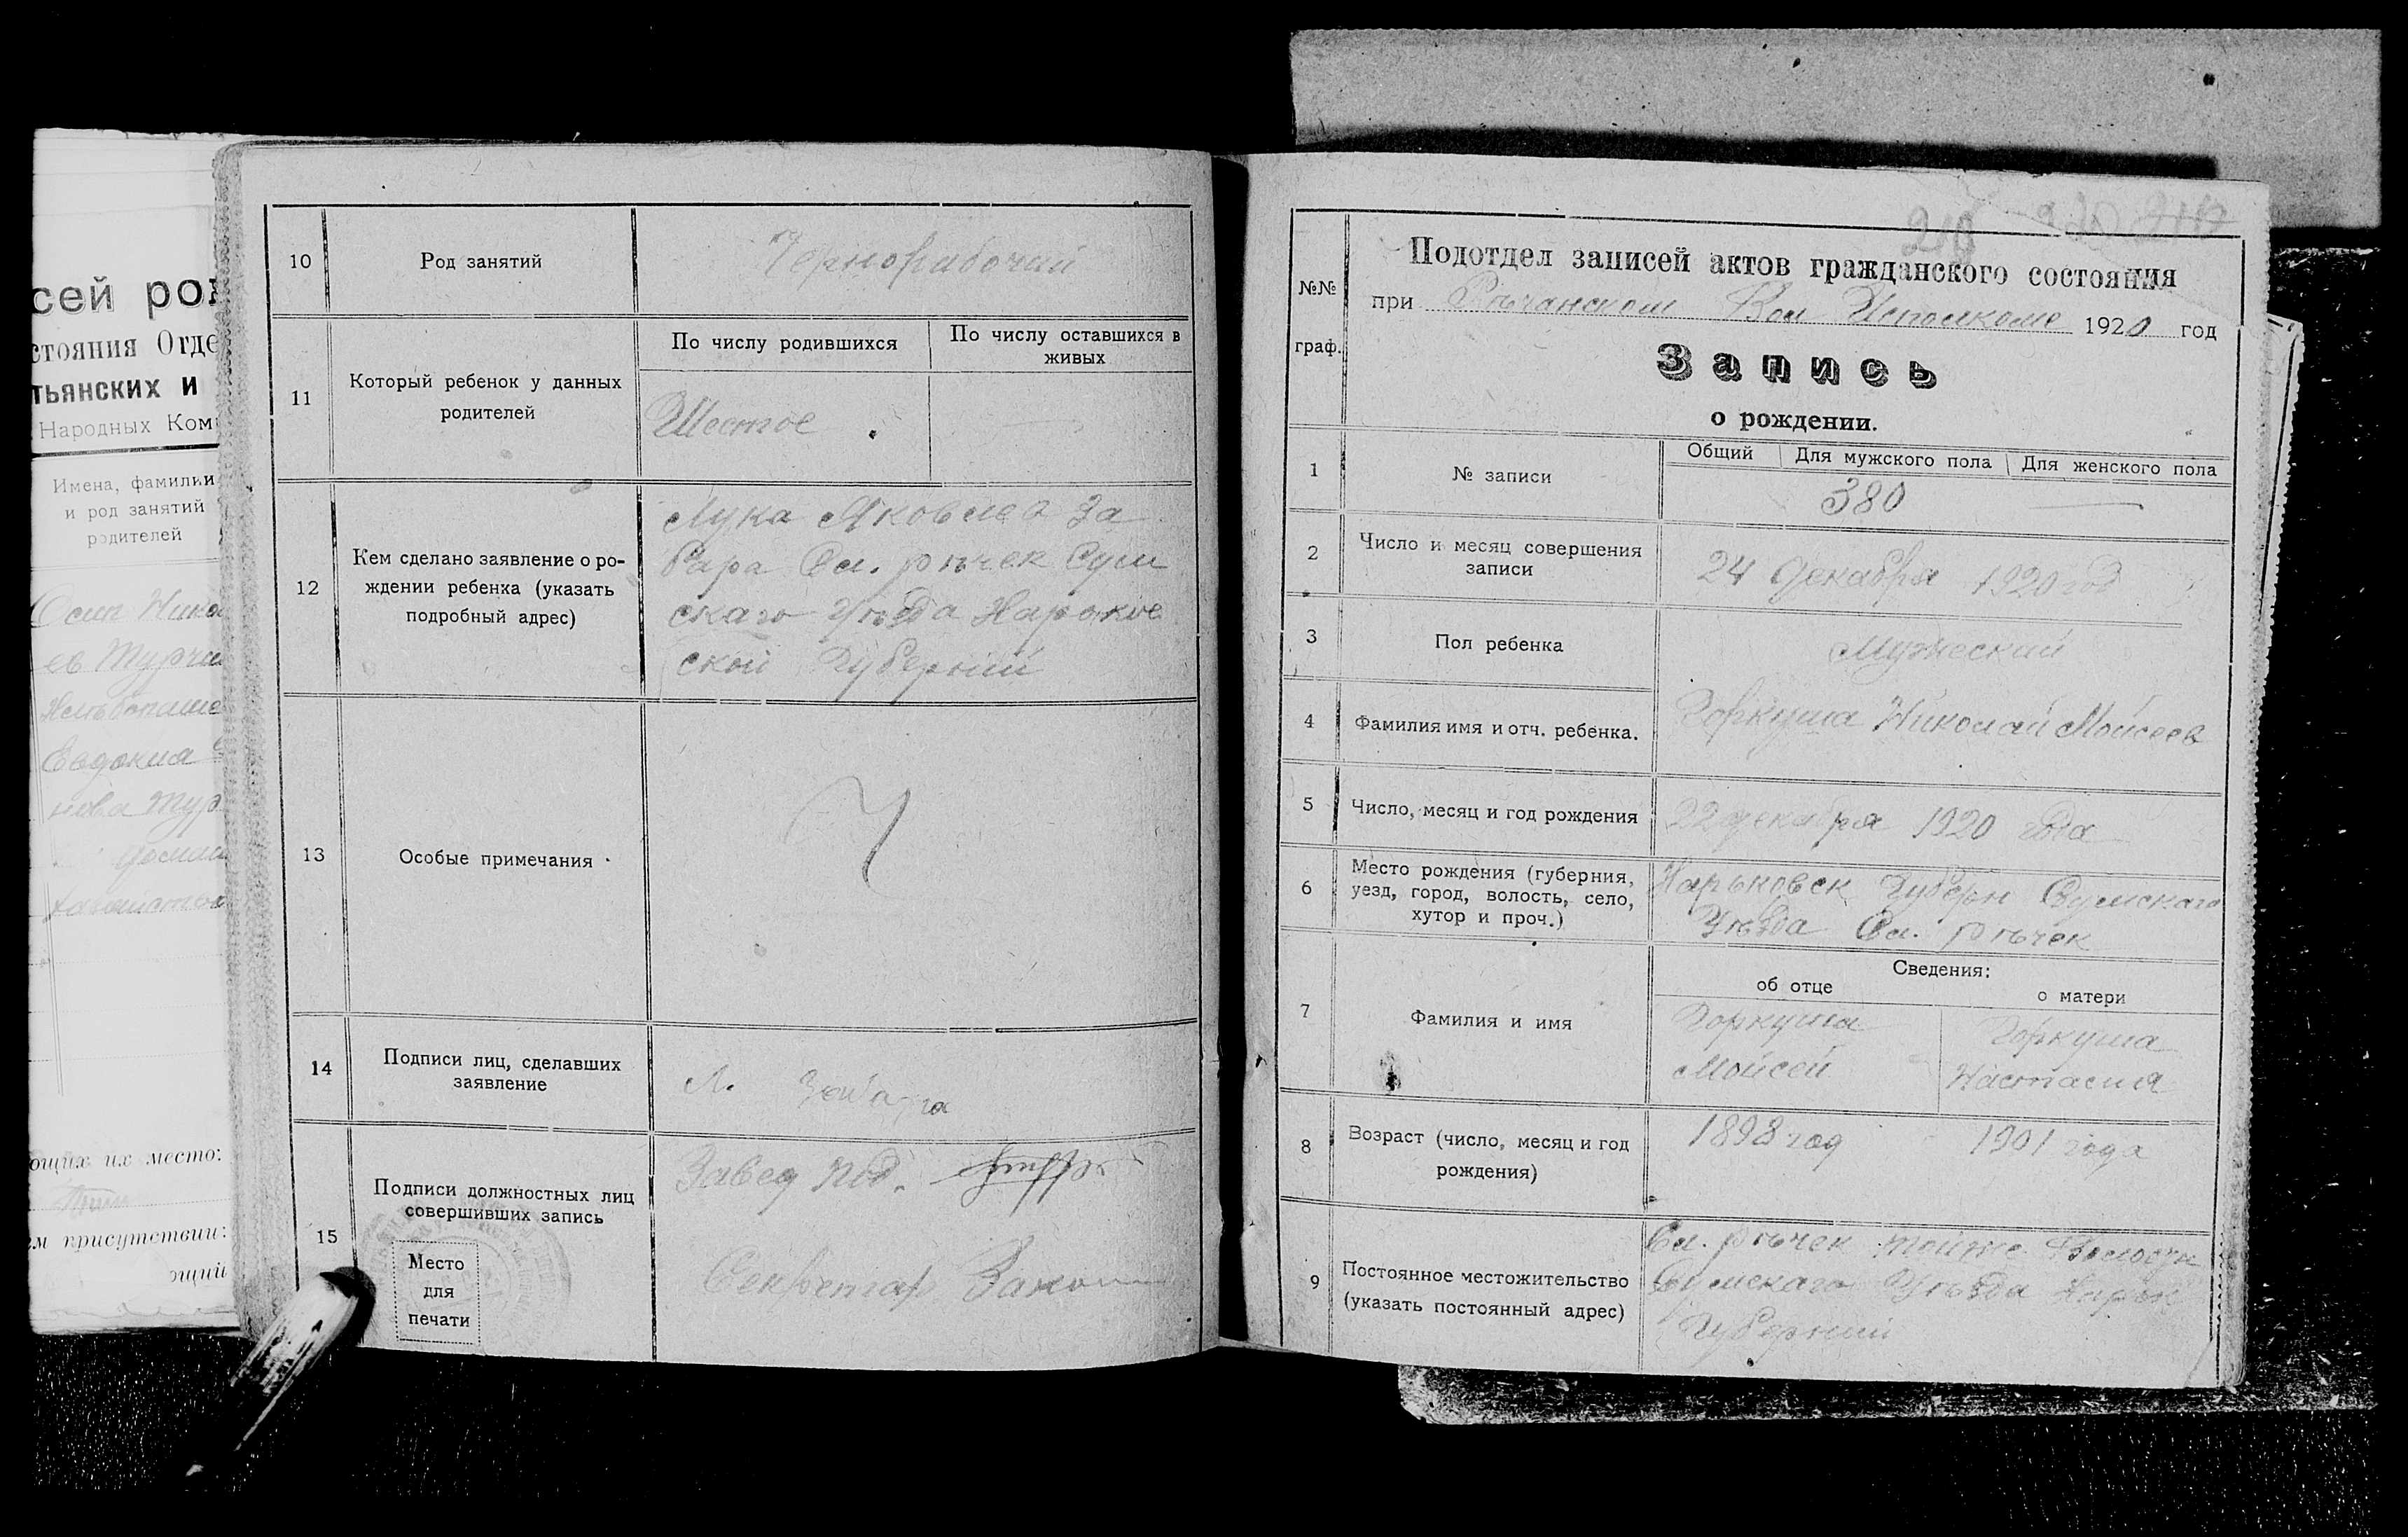 сей рож
стояния Отде
тьянских и
Народных Ком
Имена, фамилии
и род занятий
родителей
Осип Нико
ев Турчи
Евдокия
нова Тур
ющих их место:
ем присутствии:
10 Род занятий Чернорабочий
11 Который ребенок у данных родителей
По числу родившихся По числу оставшихся в живых
Шестое . —
12 Кем сделано заявление о ро-
ждении ребенка (указать
подробный адрес)
Лука Яковлев За
бара Сл. рѣчек Сум
скаго Уѣзда Харьков
ской Губернии
13 Особые примечания
14 Подписи лиц, сделавших
заявление
Л.
15 Подписи должностных лиц
совершивших запись
Завед под.
Секретар
Место
для
печати
210 210
№№
граф.
Подотдел записей актов гражданского состояния
при Рѣчанском Вол Исполкоме 1920 год
Запись
о рождении.
1 № записи
Общий Для мужского пола Для женского пола
380 —
2 Число и месяц совершения
записи
24 декабря 1920 год
3 Пол ребенка Мужеский
4 Фамилия имя и отч. ребенка. Горкуша Николай Мойсеев
5 Число, месяц и год рождения 22 декабря 1920 года
6 Место рождения (губерния,
уезд, город, волость, село,
хутор и проч.)
Харьковск Губерн Сумскаго
Уѣзда Сл. рѣчек
Сведения:
об отце о матери
7 Фамилия и имя
Горкуша Горкуша
Мойсей Настасия
8 Возраст (число, месяц и год
рождения)
1898 год 1901 года
9 Постоянное местожительство
(указать постоянный адрес)
Сл. рѣчек тойже Волости
Сумскаго Уѣзда Харьк
Губернии